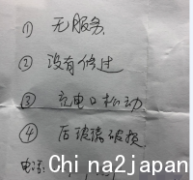 ① 无服务
② 没有修过
③ 充电口松动
④ 后玻璃破损
电话:
China2japan